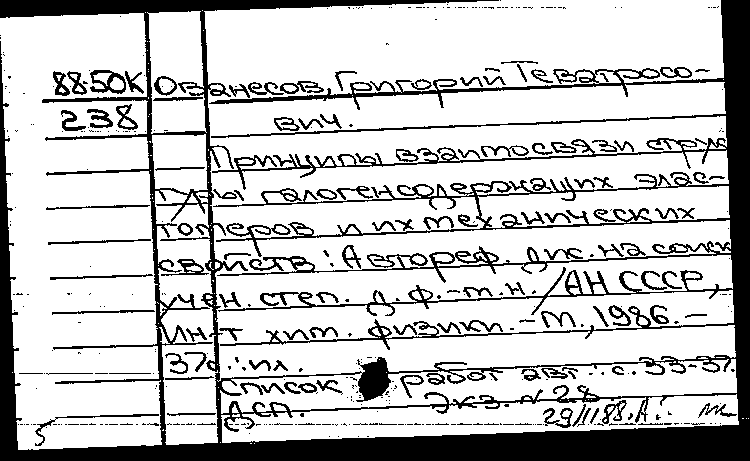 88-50К Ованесов, Григорий Теватросо-
238 вич.
Принципы взаимосвязи струк
туры галогенсодержащих элас-
томеров и их механических
свойств : Автореф. дис. на соиск
учен. степ. д. ф.-м.н. / АН СССР,
Ин-т хим. физики. - М., 1986. -
37с. : ил.
Список работ авт.: с. 33-37.
ДСП. Экз. N 28
5 29/II 88. А